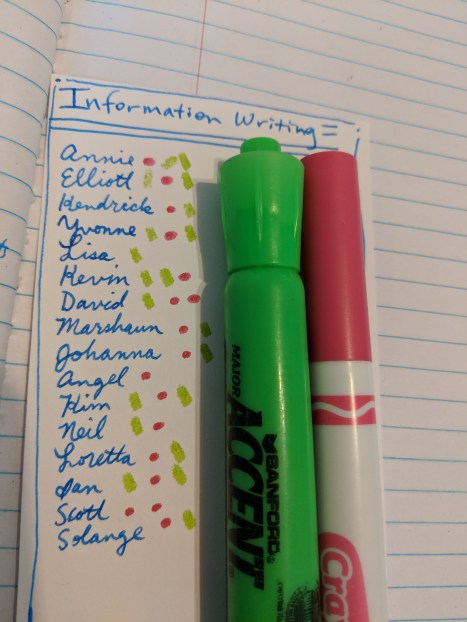 Information Writing
Annie
Elliott
Kendrick
Yvonne
Lisa
Kevin
David
Marshaun
Johanna
Angel
Kim
Neil
Loretta
Ian
Scott
Solange
MAJOR
ACCENT
SANFORD
Cra